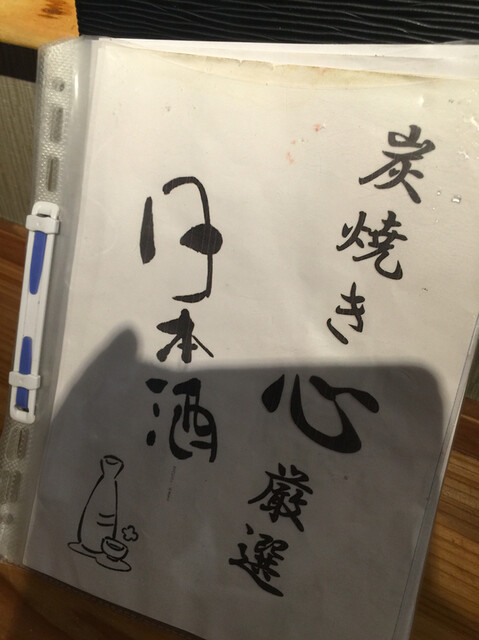 炭焼き心厳選
日本酒